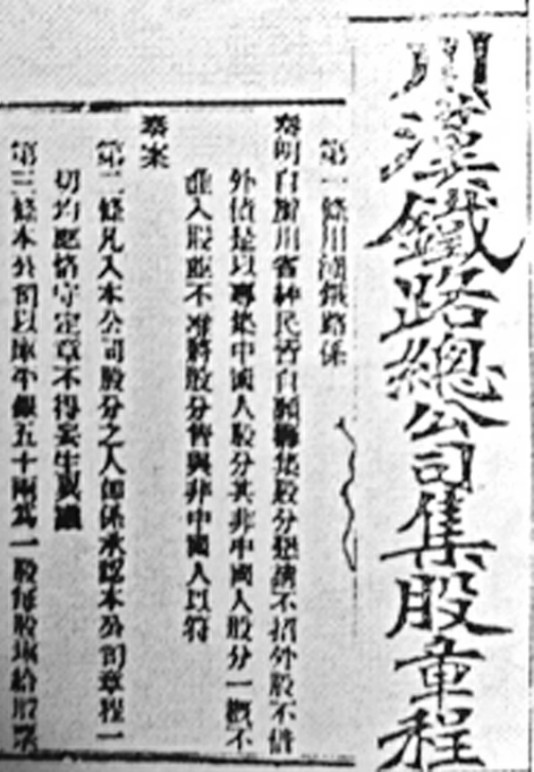 川漢鐵路總公司集股章程
第一條川漢鐵路係
奏明自辦川省紳民皆自願籌集股分穏不招外股不借
外債是以專集中國人股分其非中國人股分一概不
准入股並不准將股分售與非中國人以符
奏案
第二條凡入本公司股分之人即係承認本公司章程一
切均應恪守定章不得妄生異議
第三條本公司以庫平銀五十兩為一股每股填給股票